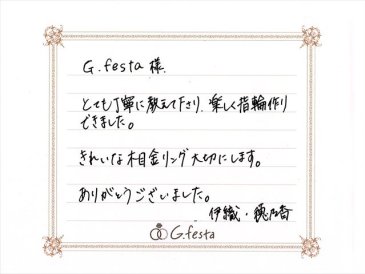 G.festa 様.
とても丁寧に教えて下さり、楽しく指輪作り
できました。
きれいな相金リング大切にします。
ありがとうございました。
伊織・穂乃香
G.festa